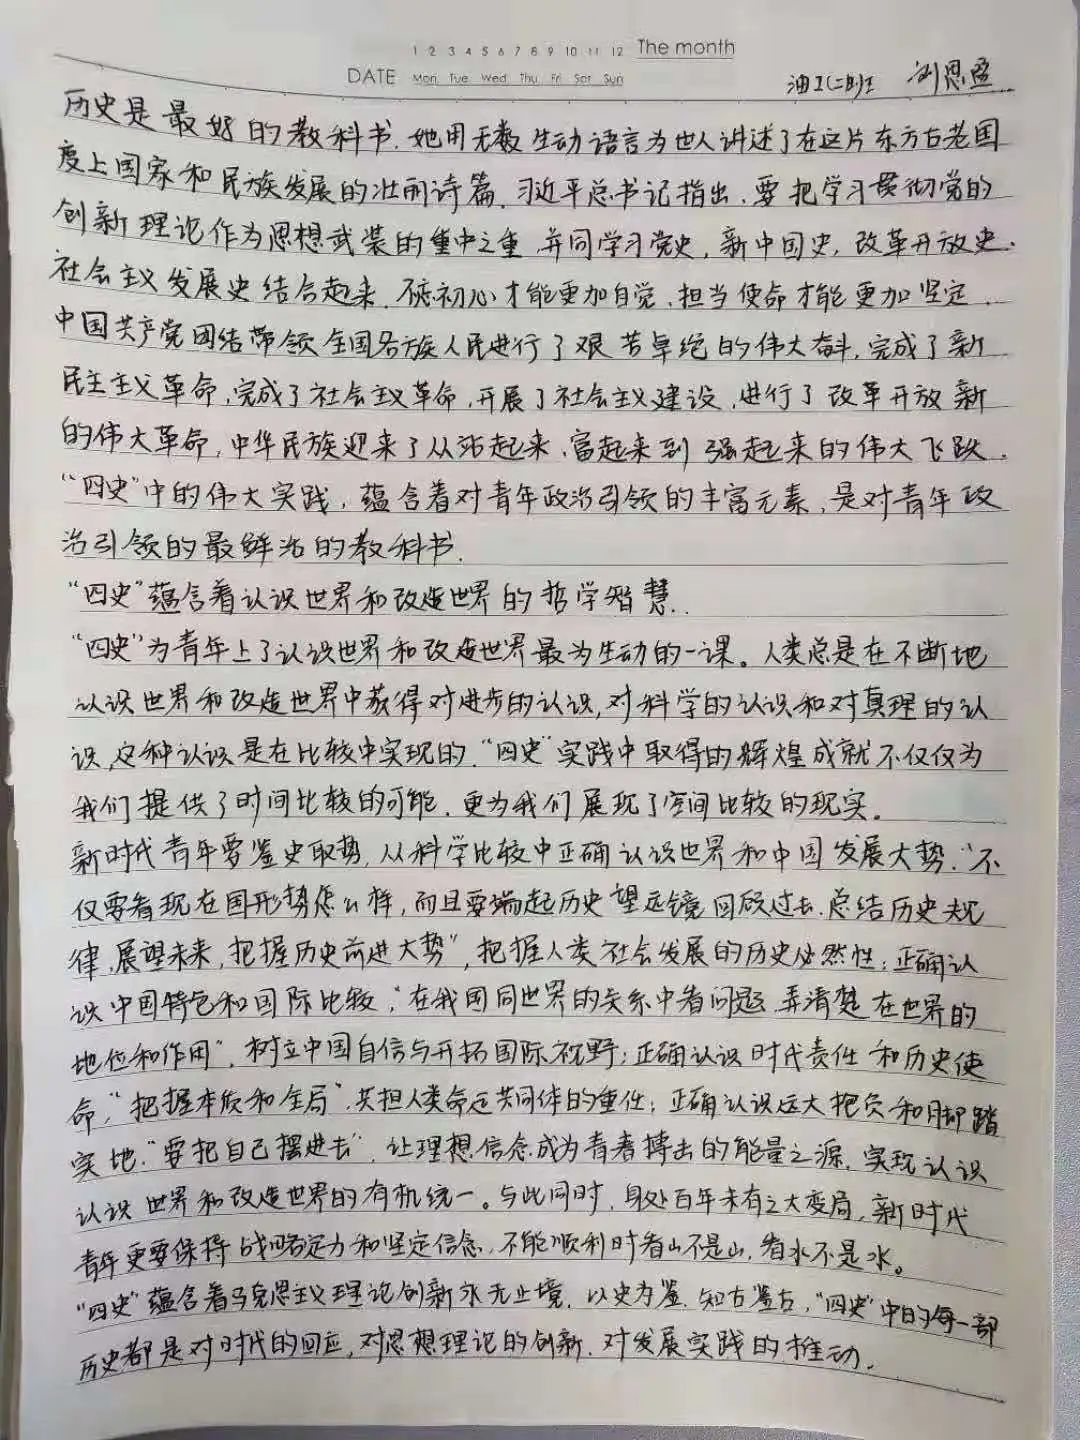 1 2 3 4 5 6 7 8 9 10 11 12 The month
DATE Mon Tue Wed Thu Fri Sat Sun
油工(二)班 刘思盈
历史是最好的教科书.她用无数生动语言为世人讲述了在这片东方古老国
度上国家和民族发展的壮丽诗篇.习近平总书记指出、要把学习贯彻党的
创新理论作为思想武装的重中之重,并同学习党史,新中国史,改革开放史、
社会主义发展史结合起来.初心才能更加自觉,担当使命才能更加坚定.
中国共产党团结带领全国各族人民进行了艰苦卓绝的伟大奋斗,完成了新
民主主义革命,完成了社会主义革命,开展了社会主义建设,进行了改革开放新
的伟大革命,中华民族迎来了从站起来、富起来到强起来的伟大飞跃.
“四史”中的伟大实践,蕴含着对青年政治引领的丰富元素,是对青年政
治引领的最鲜活的教科书.
“四史”蕴含着认识世界和改造世界的哲学智慧..
“四史”为青年上了认识世界和改造世界最为生动的一课。人类总是在不断地
认识世界和改造世界中获得对进步的认识,对科学的认识和对真理的认
识,这种认识是在比较中实现的.“四史”实践中取得的辉煌成就不仅仅为
我们提供了时间比较的可能.更为我们展现了空间比较的现实。
新时代青年要鉴史取势,从科学比较中正确认识世界和中国发展大势.“不
仅要看现在国形势怎么样,而且要端起历史望远镜回顾过去.总结历史规
律,展望未来,把握历史前进大势”,把握人类社会发展的历史必然性;正确认
识中国特色和国际比较,“在我国同世界的关系中看问题.弄清楚在世界的
地位和作用”,树立中国自信与开拓国际视野;正确认识时代责任和历史使
命,“把握本质和全局”,共担人类命运共同体的重任;正确认识远大抱负和脚踏
实地.“要把自己摆进去”,让理想信念成为青春搏击的能量之源.实现认识
认识世界和改造世界的有机统一。与此同时,身处百年未有之大变局,新时代
青年更要保持战略定力和坚定信念,不能顺利时看山不是山,看水不是水。
“四史”蕴含着马克思主义理论创新永无止境.以史为鉴.知古鉴古,“四史”中的每一部
历史都是对时代的回应,对思想理论的创新.对发展实践的推动.